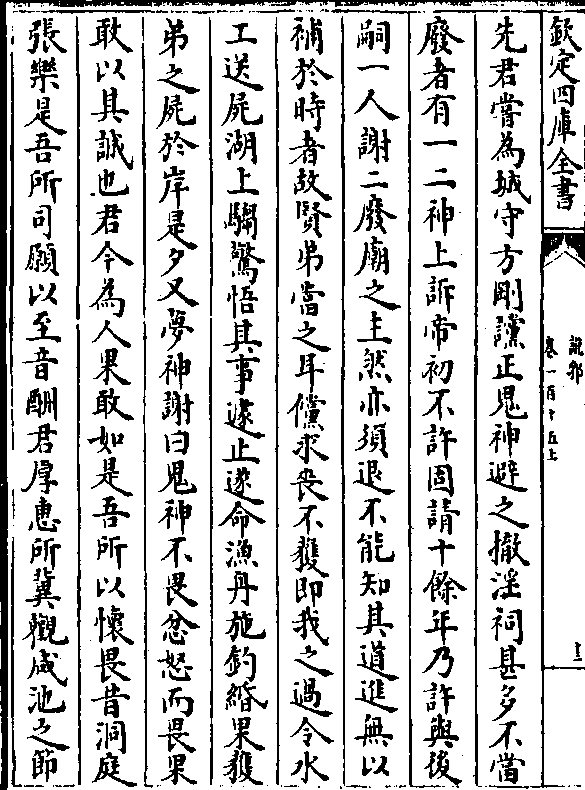 欽定四庫全書
說郛
卷一百十五上
先君嘗為城守方剛讜正鬼神避之撤淫祠甚多不當
廢者有一二神上訴帝初不許固請十餘年乃許與後
嗣一人謝二廢廟之主然亦須退不能知其道進無以
補於時者故賢弟當之耳儻求喪不獲即我之過令水
工送屍湖上騶驚悟其事遽止遂命漁舟施鈎緡果獲
弟之屍於岸是夕又夢神謝曰鬼神不畏忿怒而畏果
敢以其誠也君今為人果敢如是吾所以懷畏昔洞庭
張樂是吾所司願以至音酬君厚惠所冀觀咸池之節